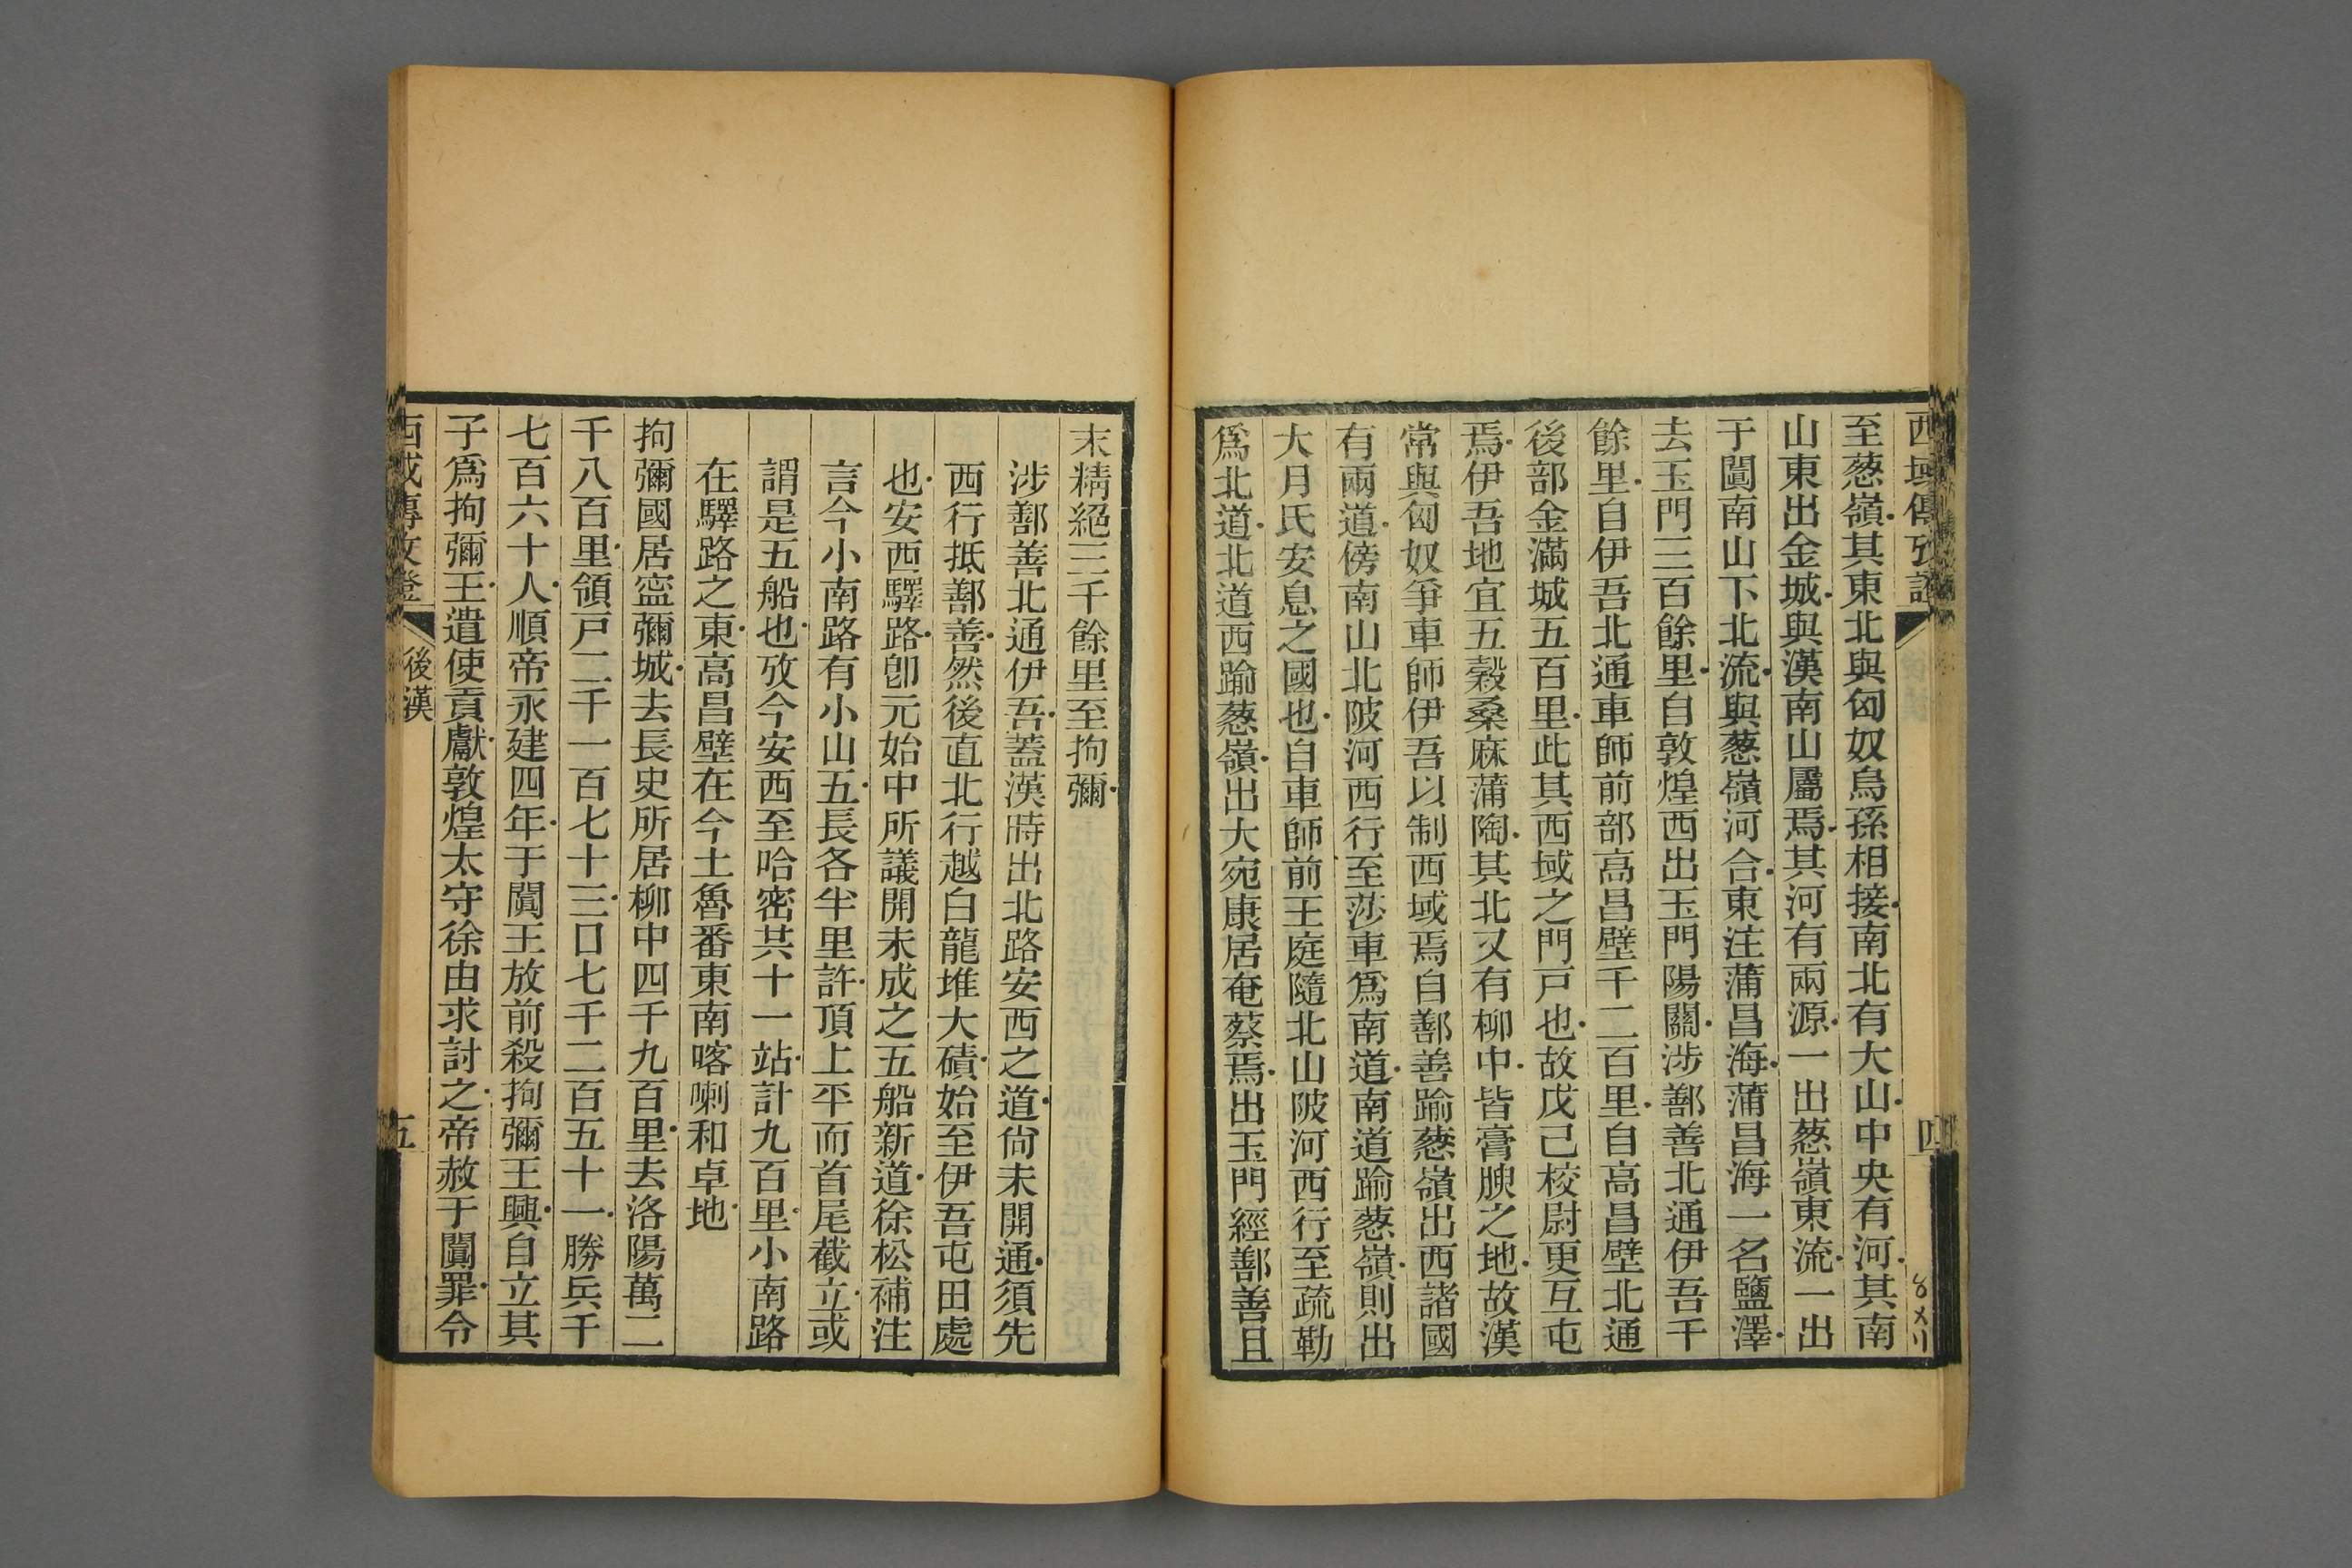 西域傳攷證
四
至葱嶺其東北與匈奴烏孫相接南北有大山中央有河其南
山東出金城與漢南山屬焉其河有兩源一出葱嶺東流一出
于闐南山下北流與葱嶺河合東注蒲昌海蒲昌海一名鹽澤
去玉門三百餘里自敦煌西出玉門陽關涉鄯善北通伊吾千
餘里自伊吾北通車師前部高昌壁千二百里自高昌壁北通
後部金滿城五百里此其西域之門戸也故戊己校尉更互屯
焉伊吾地宜五穀桑麻蒲陶其北又有柳中皆膏腴之地故漢
常與匈奴爭車師伊吾以制西域焉自鄯善踰葱嶺出西諸國
有兩道傍南山北陂河西行至莎車爲南道南道踰葱嶺則出
大月氏安息之國也自車師前王庭隨北山陂河西行至疏勒
爲北道北道西踰葱嶺出大宛康居奄蔡焉出玉門經鄯善且
末精絕三千餘里至拘彌
涉鄯善北通伊吾蓋漢時出北路安西之道尙未開通須先
西行抵鄯善然後直北行越白龍堆大磧始至伊吾屯田處
也安西驛路卽元始中所議開未成之五船新道徐松補注
言今小南路有小山五長各半里許頂上平而首尾截立或
謂是五船也攷今安西至哈密共十一站計九百里小南路
在驛路之東高昌壁在今土魯番東南喀喇和卓地
拘彌國居寍彌城去長史所居柳中四千九百里去洛陽萬二
千八百里領戸二千一百七十三口七千二百五十一勝兵千
七百六十人順帝永建四年于闐王放前殺拘彌王興自立其
子爲拘彌王遣使貢獻敦煌太守徐由求討之帝赦于闐罪令
西域傳攷證
後漢
五